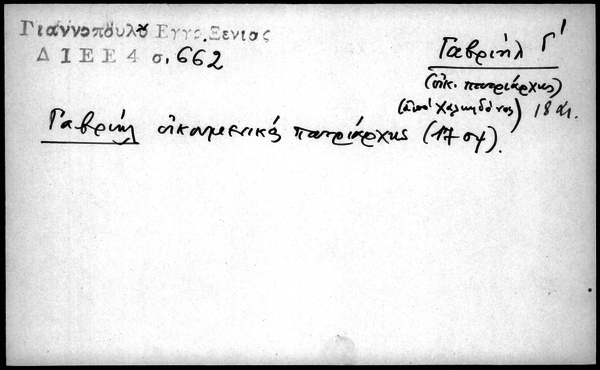 Γιαννοπούλου Εγγρ. Ξενιας
ΔΙΕΕ 4 σ. 662
Γαβριήλ Γ'
(οἰκ. πατριάρχης)
(ἀπό Χαλκηδόνος) 18 αι.
Γαβριήλ οἰκουμενικός πατριάρχης (1704).